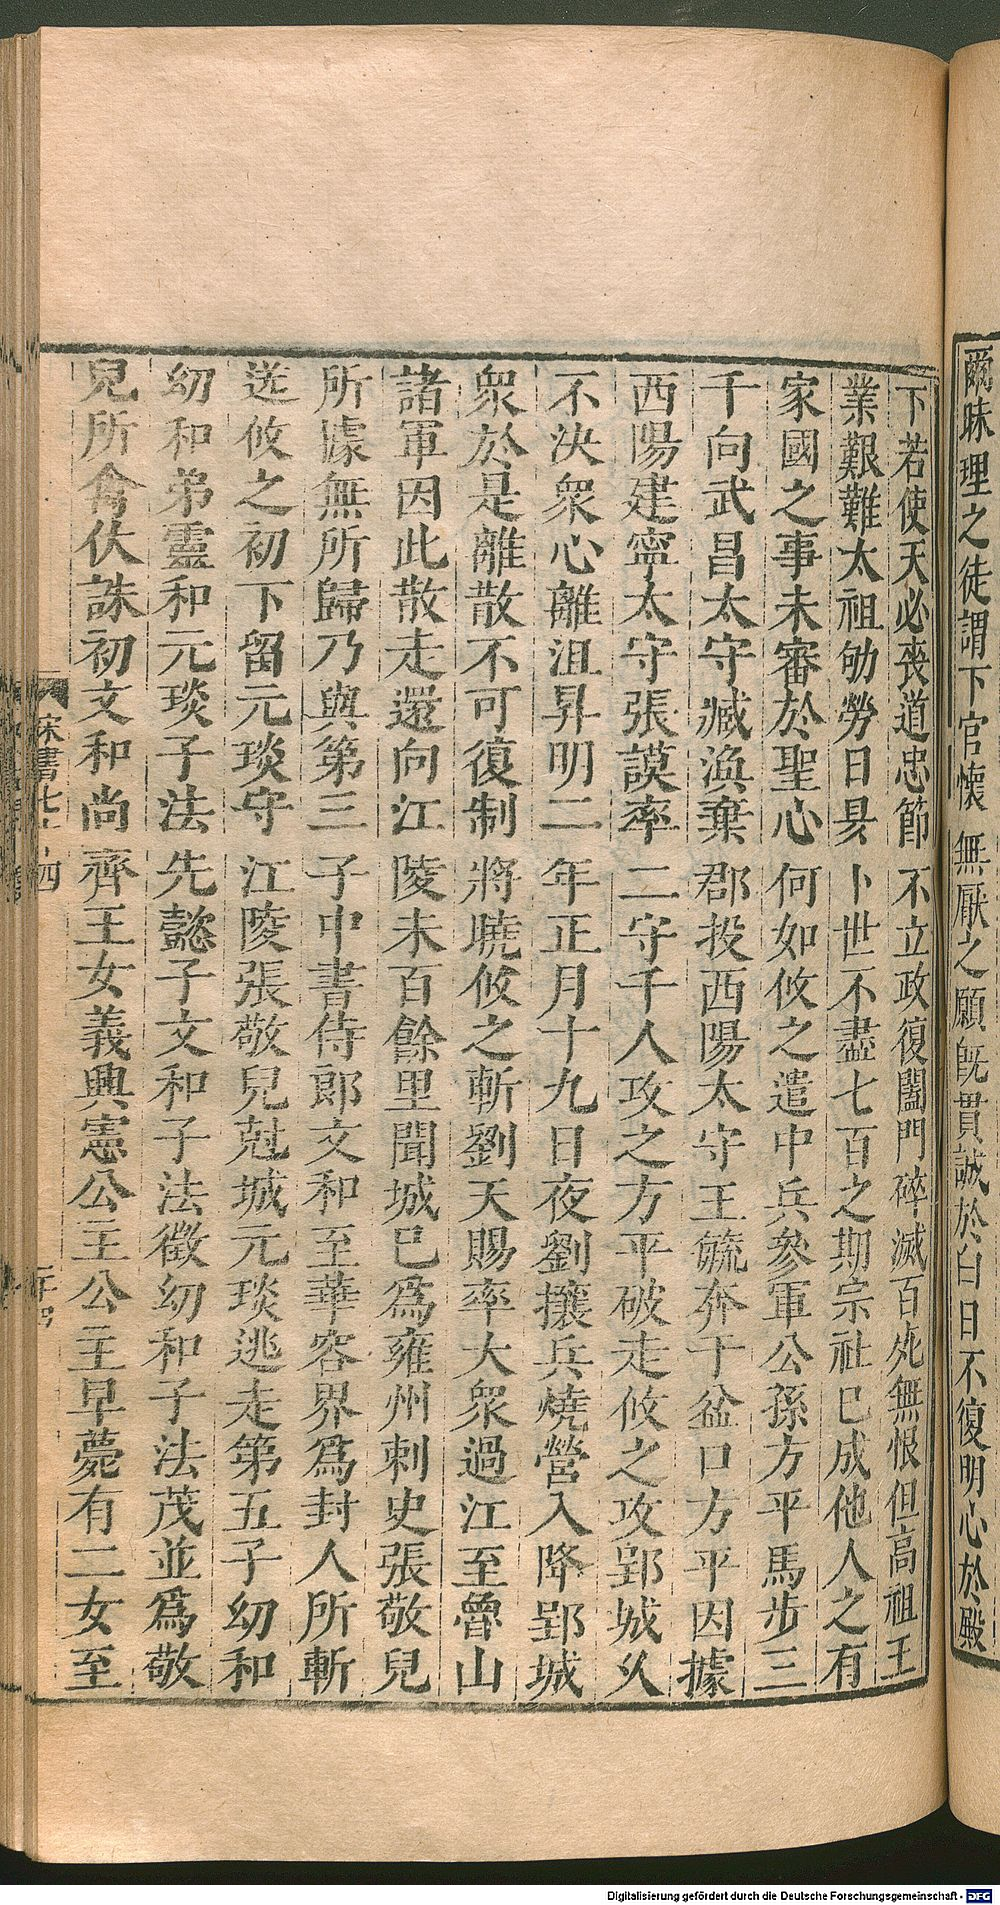 爾昧理之徒謂下官懷無厭之願旣貫誠於白日不復明心於殿
下若使天必喪道忠節不立政復闔門碎滅百死無恨但高祖王
業艱難太祖劬勞日昃卜世不盡七百之期宗社已成他人之有
家國之事未審於聖心何如攸之遣中兵參軍公孫方平馬步三
千向武昌太守臧渙棄郡投西陽太守王毓奔于盆口方平因據
西陽建寧太守張謨率二守千人攻之方平破走攸之攻郢城久
不決衆心離沮昇明二年正月十九日夜劉攘兵燒營入降郢城
衆於是離散不可復制將曉攸之斬劉天賜率大衆過江至魯山
諸軍因此散走還向江陵未百餘里聞城已爲雍州刺史張敬兒
所據無所歸乃與第三子中書侍郎文和至華容界爲封人所斬
送攸之初下留元琰守江陵張敬兒尅城元琰逃走第五子幼和
幼和弟靈和元琰子法先懿子文和子法徵幼和子法茂並爲敬
兒所禽伏誅初文和尚齊王女義興憲公主公主早薨有二女至
宋書七十四
Digitalisierung gefördert durch die Deutsche Forschungsgemeinschaft - DFG